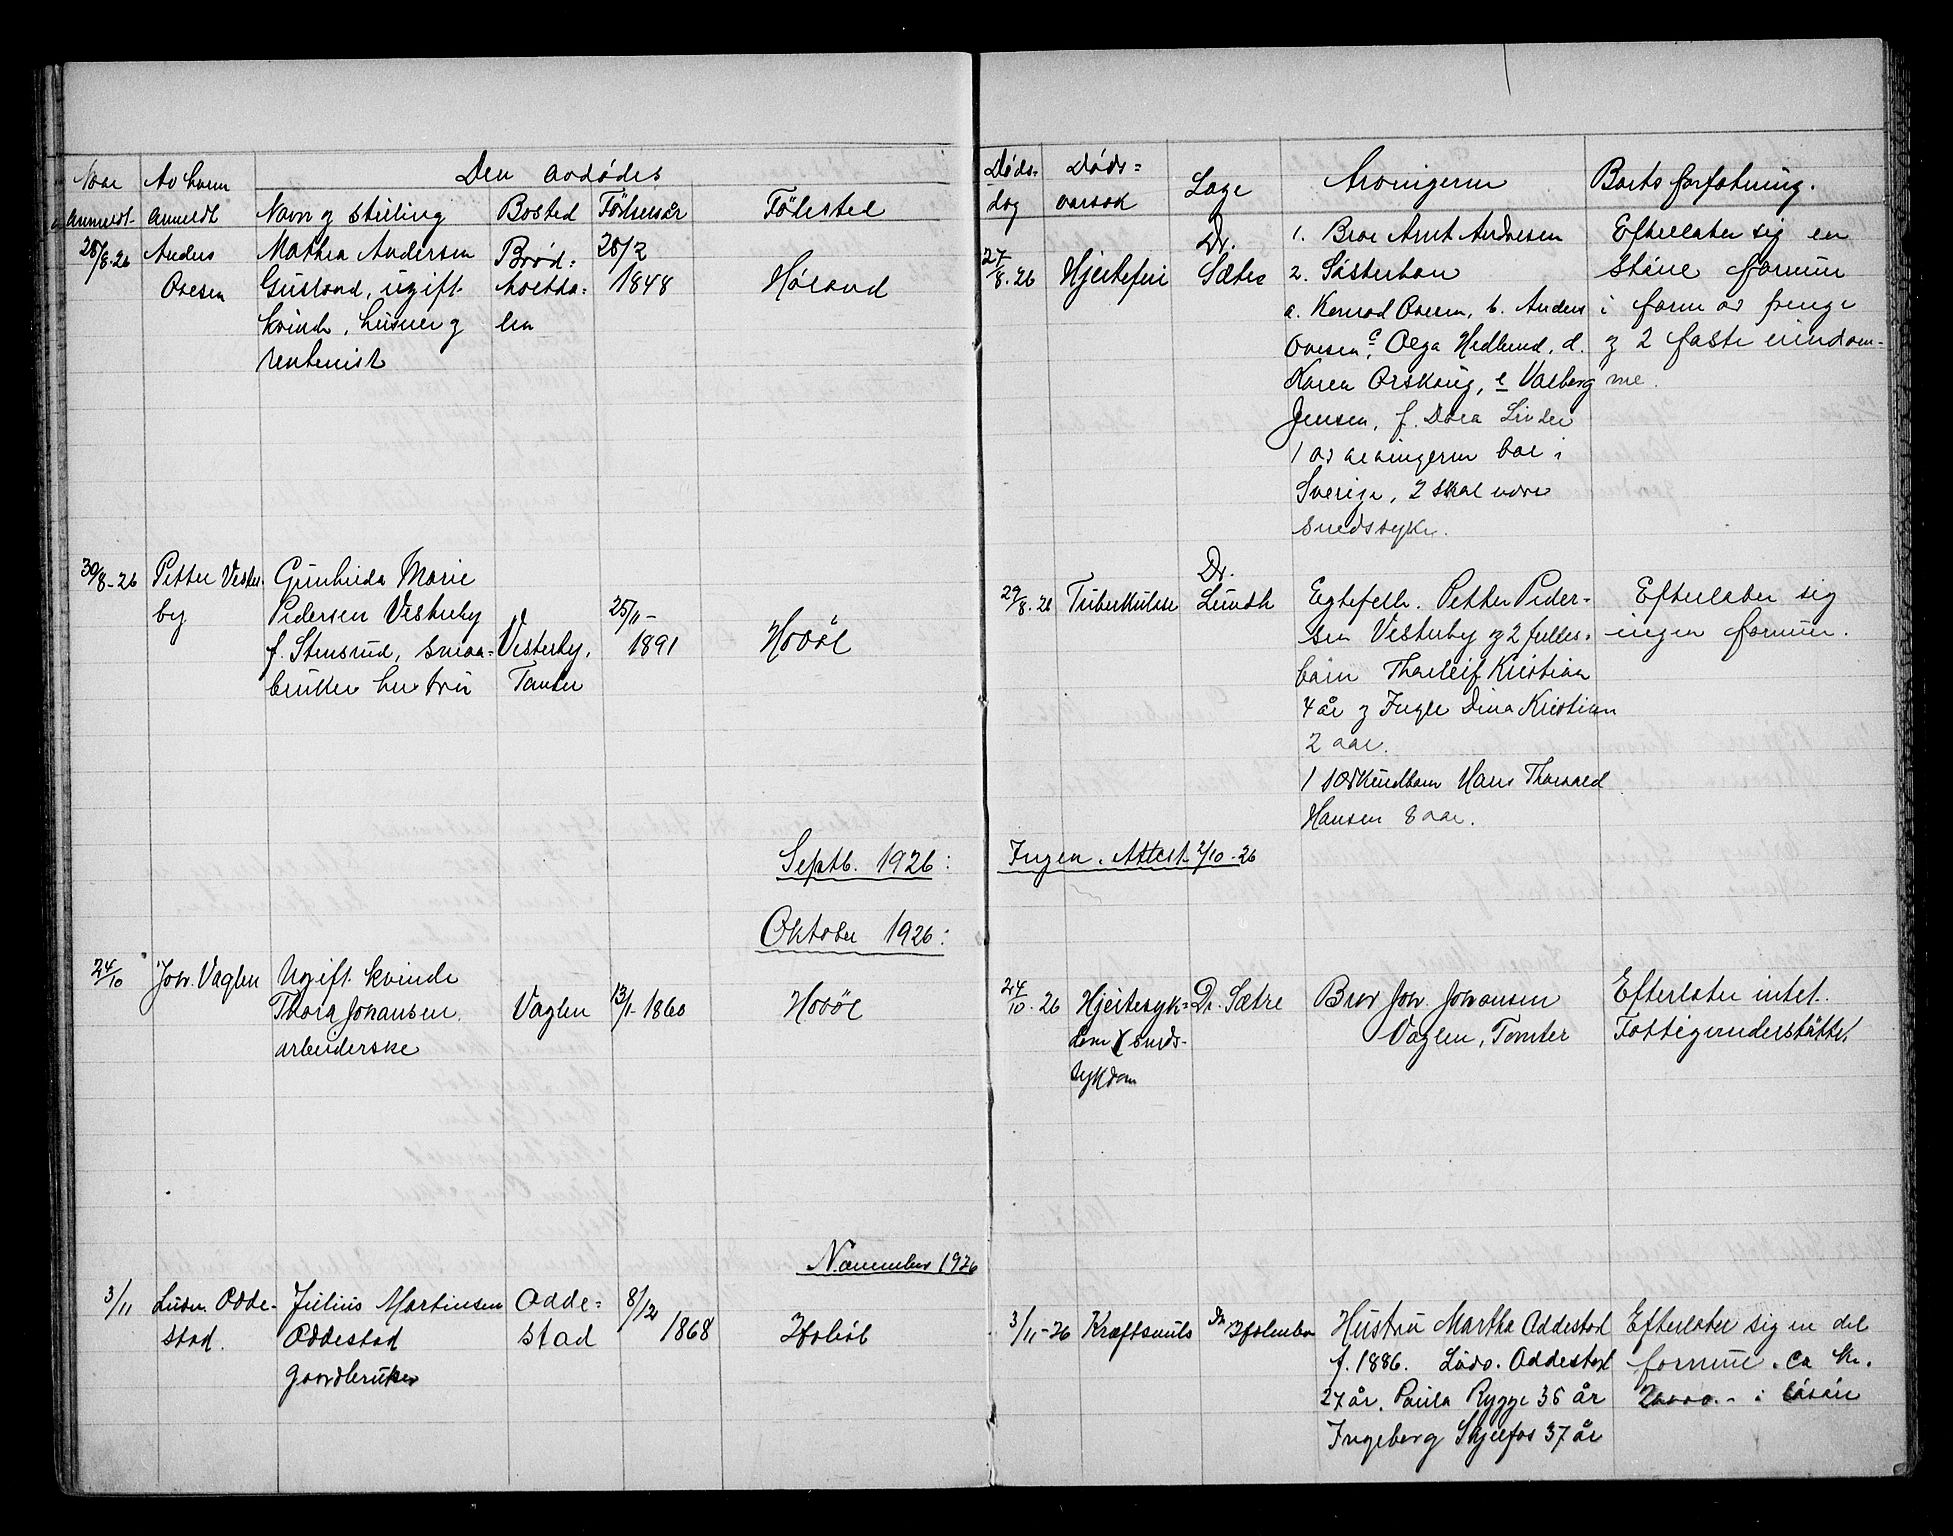 Den avdødes
Naar anmeldt
Av hvem anmeldt
Navn og stilling
Bosted
Fødselsår
Fødested
Døds-dag
Døds=aarsak
Læge
Arvingerne
Boets forfatning.
28/8-26
Anders
Ovesen
Mathea Andersen
Gusland, ugift
kvinde, huseier og
rentenist
Brød=
holtda=
len
28/2
1848
Høland
27/8.26
Hjertefeil
Dr.
Sætre
1. Bror Arnt Andresen
2. Søsterbarn
a. Konrad Ovesen, b. Anders
Ovesen, c Olga Hedlund, d.
Karen Orskoug, e Valborg
Jensen, f. Dora Linder
1 av arvingerne bor i
Sverige, 2 skal være
sindssyke.
Efterlater sig en
større formue
i form av penge
og 2 faste eiendom-
me.
30/8-26
Petter Vester
by
Gunhilda Marie
Pedersen Vesterby
f. Stensrud, smaa-
bruker hustru
Vesterby,
Tomter
25/11-
1891
Hobøl
29/8.26
Tuberkulose
Dr.
Lundh
Egtefelle Petter Peder-
sen Vesterby og 2 felles-
barn Thorleif Kristian
4 år og Ingle Dina Kristian
2 aar.
1 særkuldbarn Hans Thorvald
Hansen 8 aar.
Efterlater sig
ingen formue.
Septb. 1926:
Ingen. Attest 2/10-26
Oktober 1926:
24/10
Joh. Vaglen
Ugift kvinde
Thora Johansen.
arbeiderske
Vaglen
13/1-1860
Hobøl
24/10-26
Hjertesyk=
dom sinds-
sykdom
Dr. Sætre
Bror Joh. Johansen
Vaglen, Tomter
Efterlater intet.
Fattigunderstøttet
November 1926
3/11
Ludv. Odde-
stad.
Julius Martinsen
Oddestad
gaardbruker
Odde=
stad
8/12
1868
Hobøl
3/11-26
Kræftsvuls
Dr Holmbo
Hustru Martha Oddestad
f. 1886. Ludv. Oddestad
27 år, Paula Rygge 35 år
Ingeborg Skjelfos 37 år
Efterlater sig en del
formue. ca kr.
20000.- i løsøre